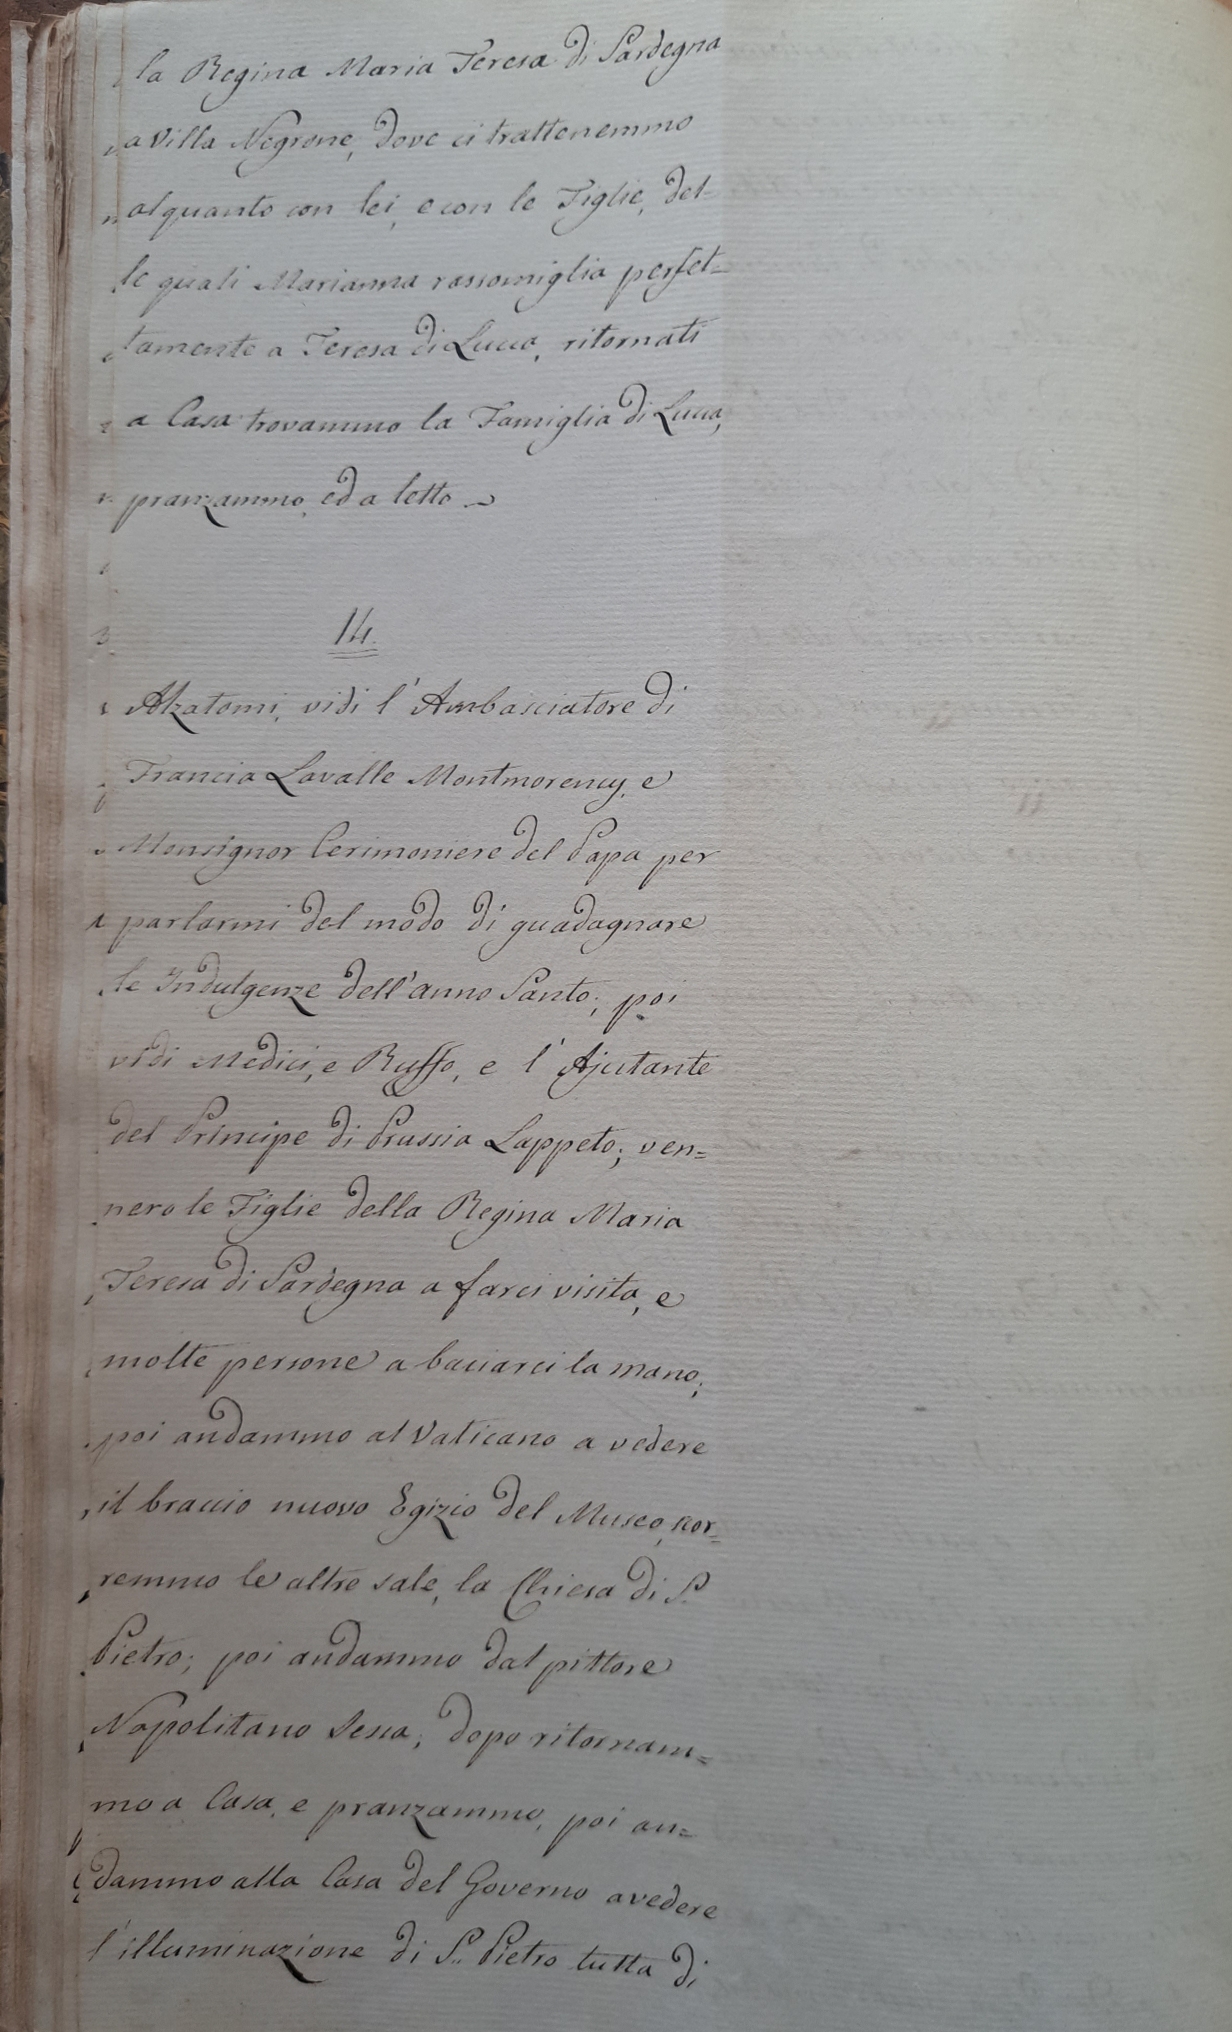 la Regina Maria Teresa di Sardegna
a Villa Negrone, dove ci trattenemmo
alquanto con lei, e con le Figlie, del-
le quali Marianna rassomiglia perfet=
tamente a Teresa di Lucca, ritornati
a Casa trovammo la Famiglia di Lucca,
pranzammo, ed a letto.
14.
Alzatomi, vidi l'Ambasciatore di
Francia Lavalle Montmorency, e
Monsignor Cerimoniere del Papa per
parlarmi del modo di guadagnare
le Indulgenze dell'anno Santo; poi
vidi Medici, e Ruffo, e l'Ajutante
del Principe di Prussia Lappeto; ven=
nero le Figlie della Regina Maria
Teresa di Sardegna a farci visita, e
molte persone a baciarci la mano;
poi andammo al Vaticano a vedere
il braccio nuovo Egizio del Museo, scor=
remmo le altre sale, la Chiesa di S.
Pietro; poi andammo dal pittore
Napolitano Sessa; dopo ritornam=
mo a Casa, e pranzammo, poi an=
dammo alla Casa del Governo a vedere
l'illuminazione di S. Pietro tutta di